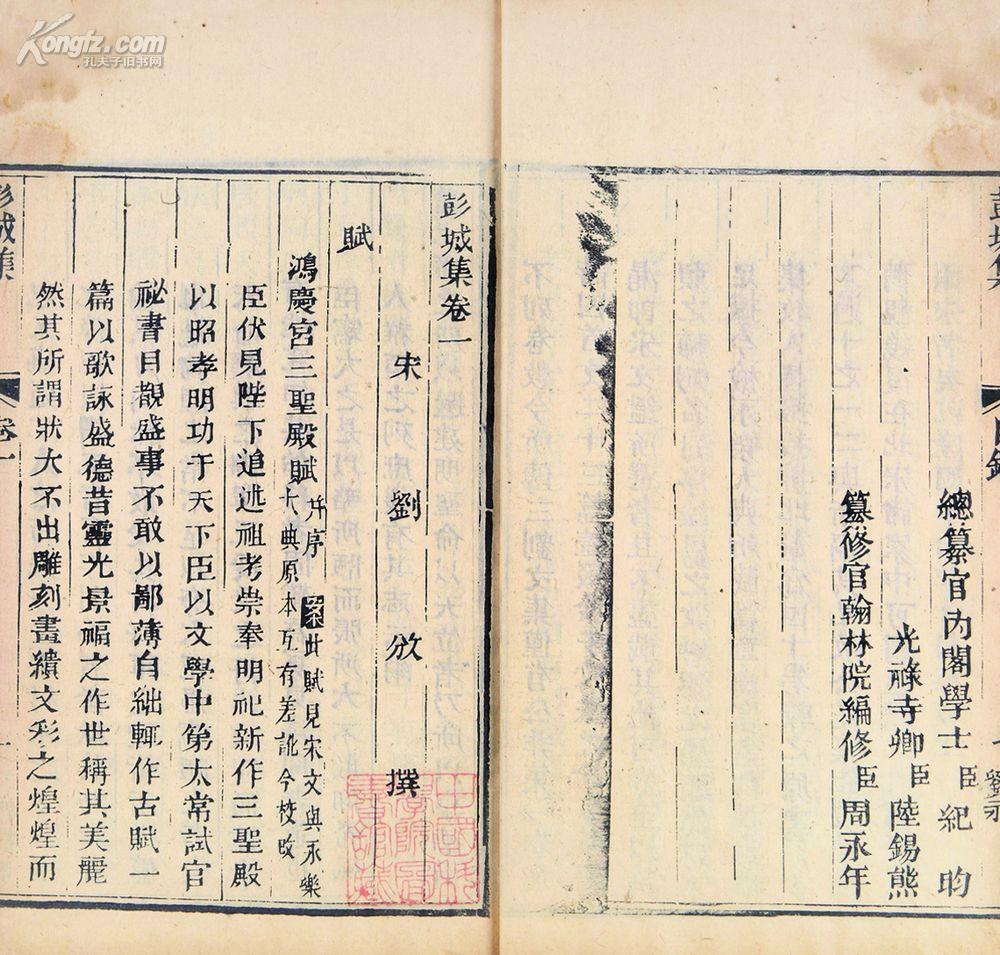 Kongfz.com
孔夫子旧书网
彭城集
目錄
劉永
總纂官內閣學士臣紀昀
光祿寺卿臣陸錫熊
纂修官翰林院編修臣周永年
彭城集卷一
宋 劉攽 撰
賦
鴻慶宮三聖殿賦
并序 案此賦見宋文與永樂
大典原本互有差訛今校改
臣伏見陛下追述祖考崇奉明祀新作三聖殿
以昭孝明功于天下臣以文學中第太常試官
祕書目觀盛事不敢以鄙薄自絀輒作古賦一
篇以歌詠盛德昔靈光景福之作世稱其美麗
然其所謂狀大不出雕刻畫繢文彩之煌煌而
彭城集
卷一
一